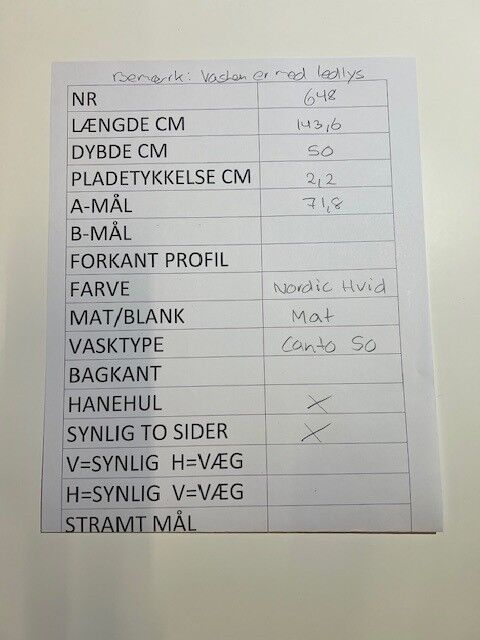 Bemærk: Vasken er med ledlys
NR 648
LÆNGDE CM 143,6
DYBDE CM 50
PLADETYKKELSE CM 2,2
A-MÅL 71,8
B-MÅL
FORKANT PROFIL
FARVE Nordic Hvid
MAT/BLANK Mat
VASKTYPE Canto 50
BAGKANT
HANEHUL X
SYNLIG TO SIDER X
V=SYNLIG H=VÆG
H=SYNLIG V=VÆG
STRAMT MÅL